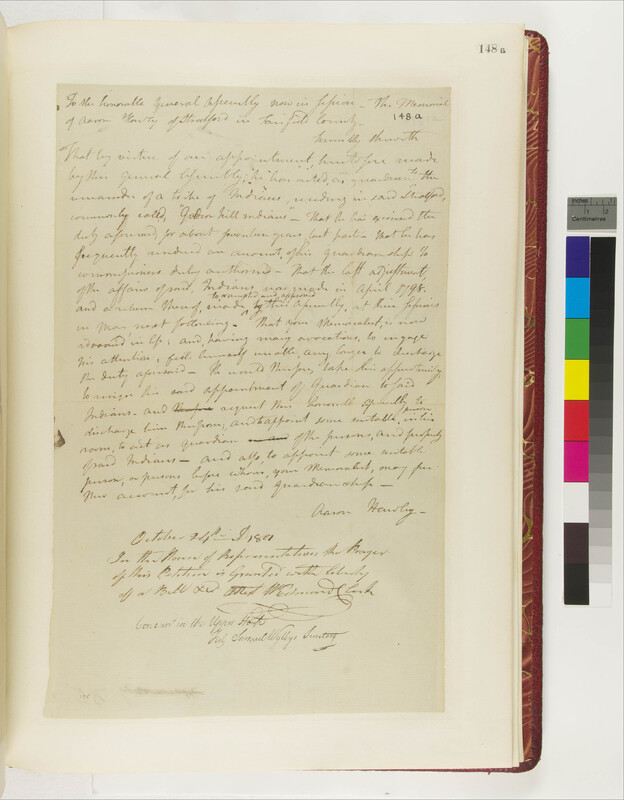 148 B
To the honorable General Assembly now in session – The Memorial
148.a
of Aaron Hawley of Stratford in Fairfield County
humbly sheweth
That by virtue of an appointment, heretofore made
by this General Assembly, he has acted, as guardian to the
remainder of a tribe of Indians, residing in said Stratford,
commonly called, Golden hill Indians – That he has exercised the
duty aforesaid, for about seventeen years, last past – that he has
frequently rendered an account, of his guardianship to
commissioners duly authorised – That the last adjustment,
of the affairs of said, Indians, was made in April 1798.
to &accepted and approved
and a return thereof, made by this Assembly, at their session
in May next following – That your Memorialist, is now
advanced in life; and, having many avocations, to engage
his attention, feels himself unable, any longer to discharge
the duty aforesaid – He would therefore, take this opportunity,
to resign his said appointment of Guardian to said
Indians – and request this honorable Assembly to
discharge him therefrom, and to appoint some suitable person in his
room, to act as guardian of the persons, and property
of said Indians – and also, to appoint some suitable
person, or persons before whom, your Memorialist, may
his account, for his said guardianship –
Aaron Hawley –
October 24th – 1801
In the House of Representatives the Prayer
of this Petition is Granted with liberty
of a Bill &c Attest Wm Edmond Clerk
Concurr'd in the Upper House
Test Samuel Wyllys Secretary
inches
1
2
Centimetres